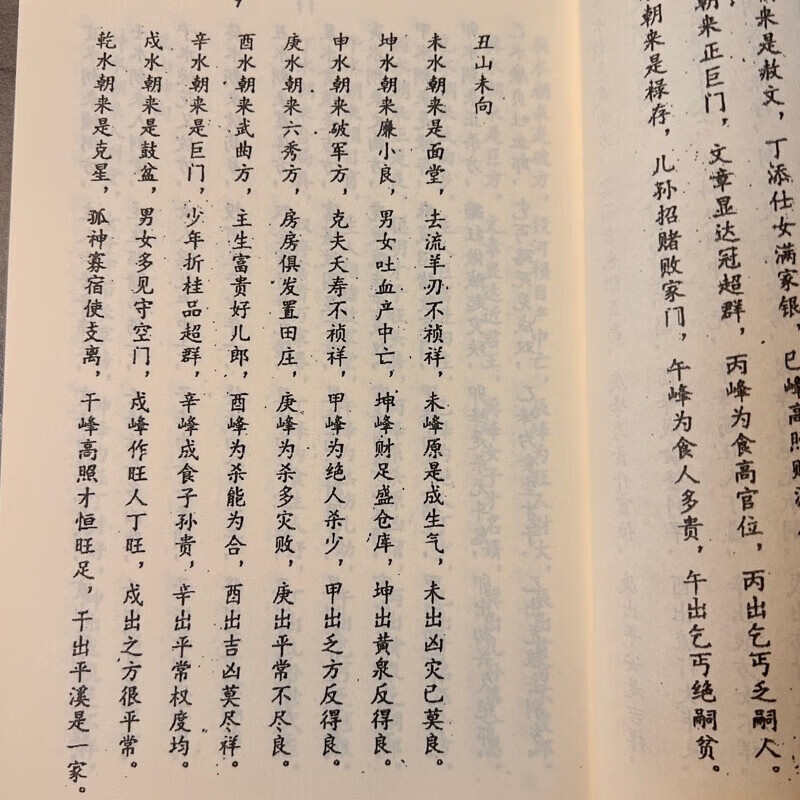 来是赦文，丁添仕女满家银，巳峰高照财
朝来正巨门，文章显达冠超群，丙峰为食高官位，丙出乞丐乏嗣人。
朝来是禄存，儿孙招赌败家门，午峰为食人多贵，午出乞丐绝嗣贫。
丑山未向
未水朝来是面堂，去流羊刃不祯祥，未峰原是成生气，未出凶灾已莫良。
坤水朝来廉小良，男女吐血产中亡，坤峰财足盛仓库，坤出黄泉反得良。
申水朝来破军方，克夫夭寿不祯祥，甲峰为绝人杀少，甲出乏方反得良。
庚水朝来六秀方，房房俱发置田庄，庚峰为杀多灾败，庚出平常不尽良。
酉水朝来武曲方，主生富贵好儿郎，酉峰为杀能为合，酉出吉凶莫尽祥。
辛水朝来是巨门，少年折桂品超群，辛峰成食子孙贵，辛出平常权度均。
戌水朝来是鼓盆，男女多见守空门，戌峰作旺人丁旺，戌出之方很平常。
乾水朝来是克星，孤神寡宿使支离，干峰高照才恒旺足，干出平溪是一家。